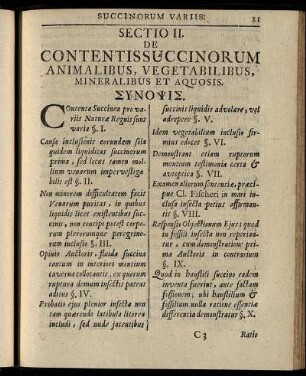 SUCCINORUM VARIIS. 21
SECTIO II.
DE
CONTENTIS SUCCINORUM
ANIMALIBUS, VEGETABILIBUS,
MINERALIBUS ET AQUOSIS.
ΣΥΝΟΨΙΣ.
COntenta Succinea pro va-
riis Naturæ Regnis sunt
varia §. I.
Causa inclusionis eorundem est
quidem liquiditas succinorum
prima, sed locus tamen mol-
lium venarum impervestiga-
bilis est §. II.
Non minorem difficultatem facit
Venarum puritas, in quibus
liquidis licet existentibus suc-
cinis, non concipi potest corpo-
rum plerorumque peregrino-
rum inclusio §. III.
Opinio Auctoris, fluida succina
coctum in interiori montium
caverna collocantis, ex quorum
ruptura demum insectis pateat
aditus §. IV.
Probatio ejus plenior insecta non
tam quærendo latibula litorea
includi, sed unde jacentibus
succinis liquidis advolare, vel
adrepere §. V.
Idem vegetabilium inclusio fir-
mius edocet §. VI.
Demonstrant etiam ruptorum
montium testimonia certa &
autoptica §. VII.
Examen aliorum sententiæ, præci-
pue Cl. Fischeri in mari in-
clusa insecta potius affirman-
tis §. VIII.
Responsis Objectionum Ejus: quod
in fossili insecta non reperian-
tur, cum demonstratione: prima
Auctoris in contrarium
§. IX.
Quod in haustili succino eadem
inventa fuerint, ante factam
fissionem; ubi haustilium &
fossilium nulla ratione essentia
differentia demonstratur §. X.
C 3 Ratio